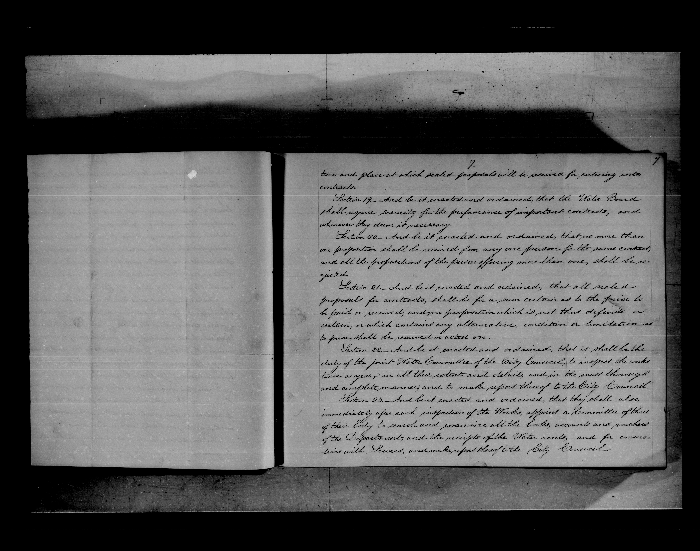 7
7
time and place at which sealed proposals will be received for entering into
contracts.
Section 19 - And be it enacted and ordained, that the Water Board
shall require security for the performance of important contracts, and
whenever they deem it necessary
Section 20 - And be it enacted and ordained, that no more than
one proposition shall be received from any one person for the same contract,
and all the propositions of the person offering more than one, shall be re-
jected.
Section 21 - And be it enacted and ordained, that all sealed
proposals for contracts, shall be for a sum certain as to the price to
be paid or received, and no proposition which is not thus definite or
certain, or which contains any alternative condition or limitation as
to price shall be received or acted on.
Section 22 - And be it enacted and ordained, that it shall be the
duty of the Joint Water Committee of the City Council, to inspect the works
in all their extent and details and in the most thorough
and complete manner and to make report thereof to the City Council
Section 23 - And be it enacted and ordained, that they shall also
immediately after each inspection of the Works, appoint a Committee of three
of their body to search and examine all the books, accounts and vouchers
of the Department, and the receipts of the Water rents, and for
with Power, and make report thereof to the City Council -